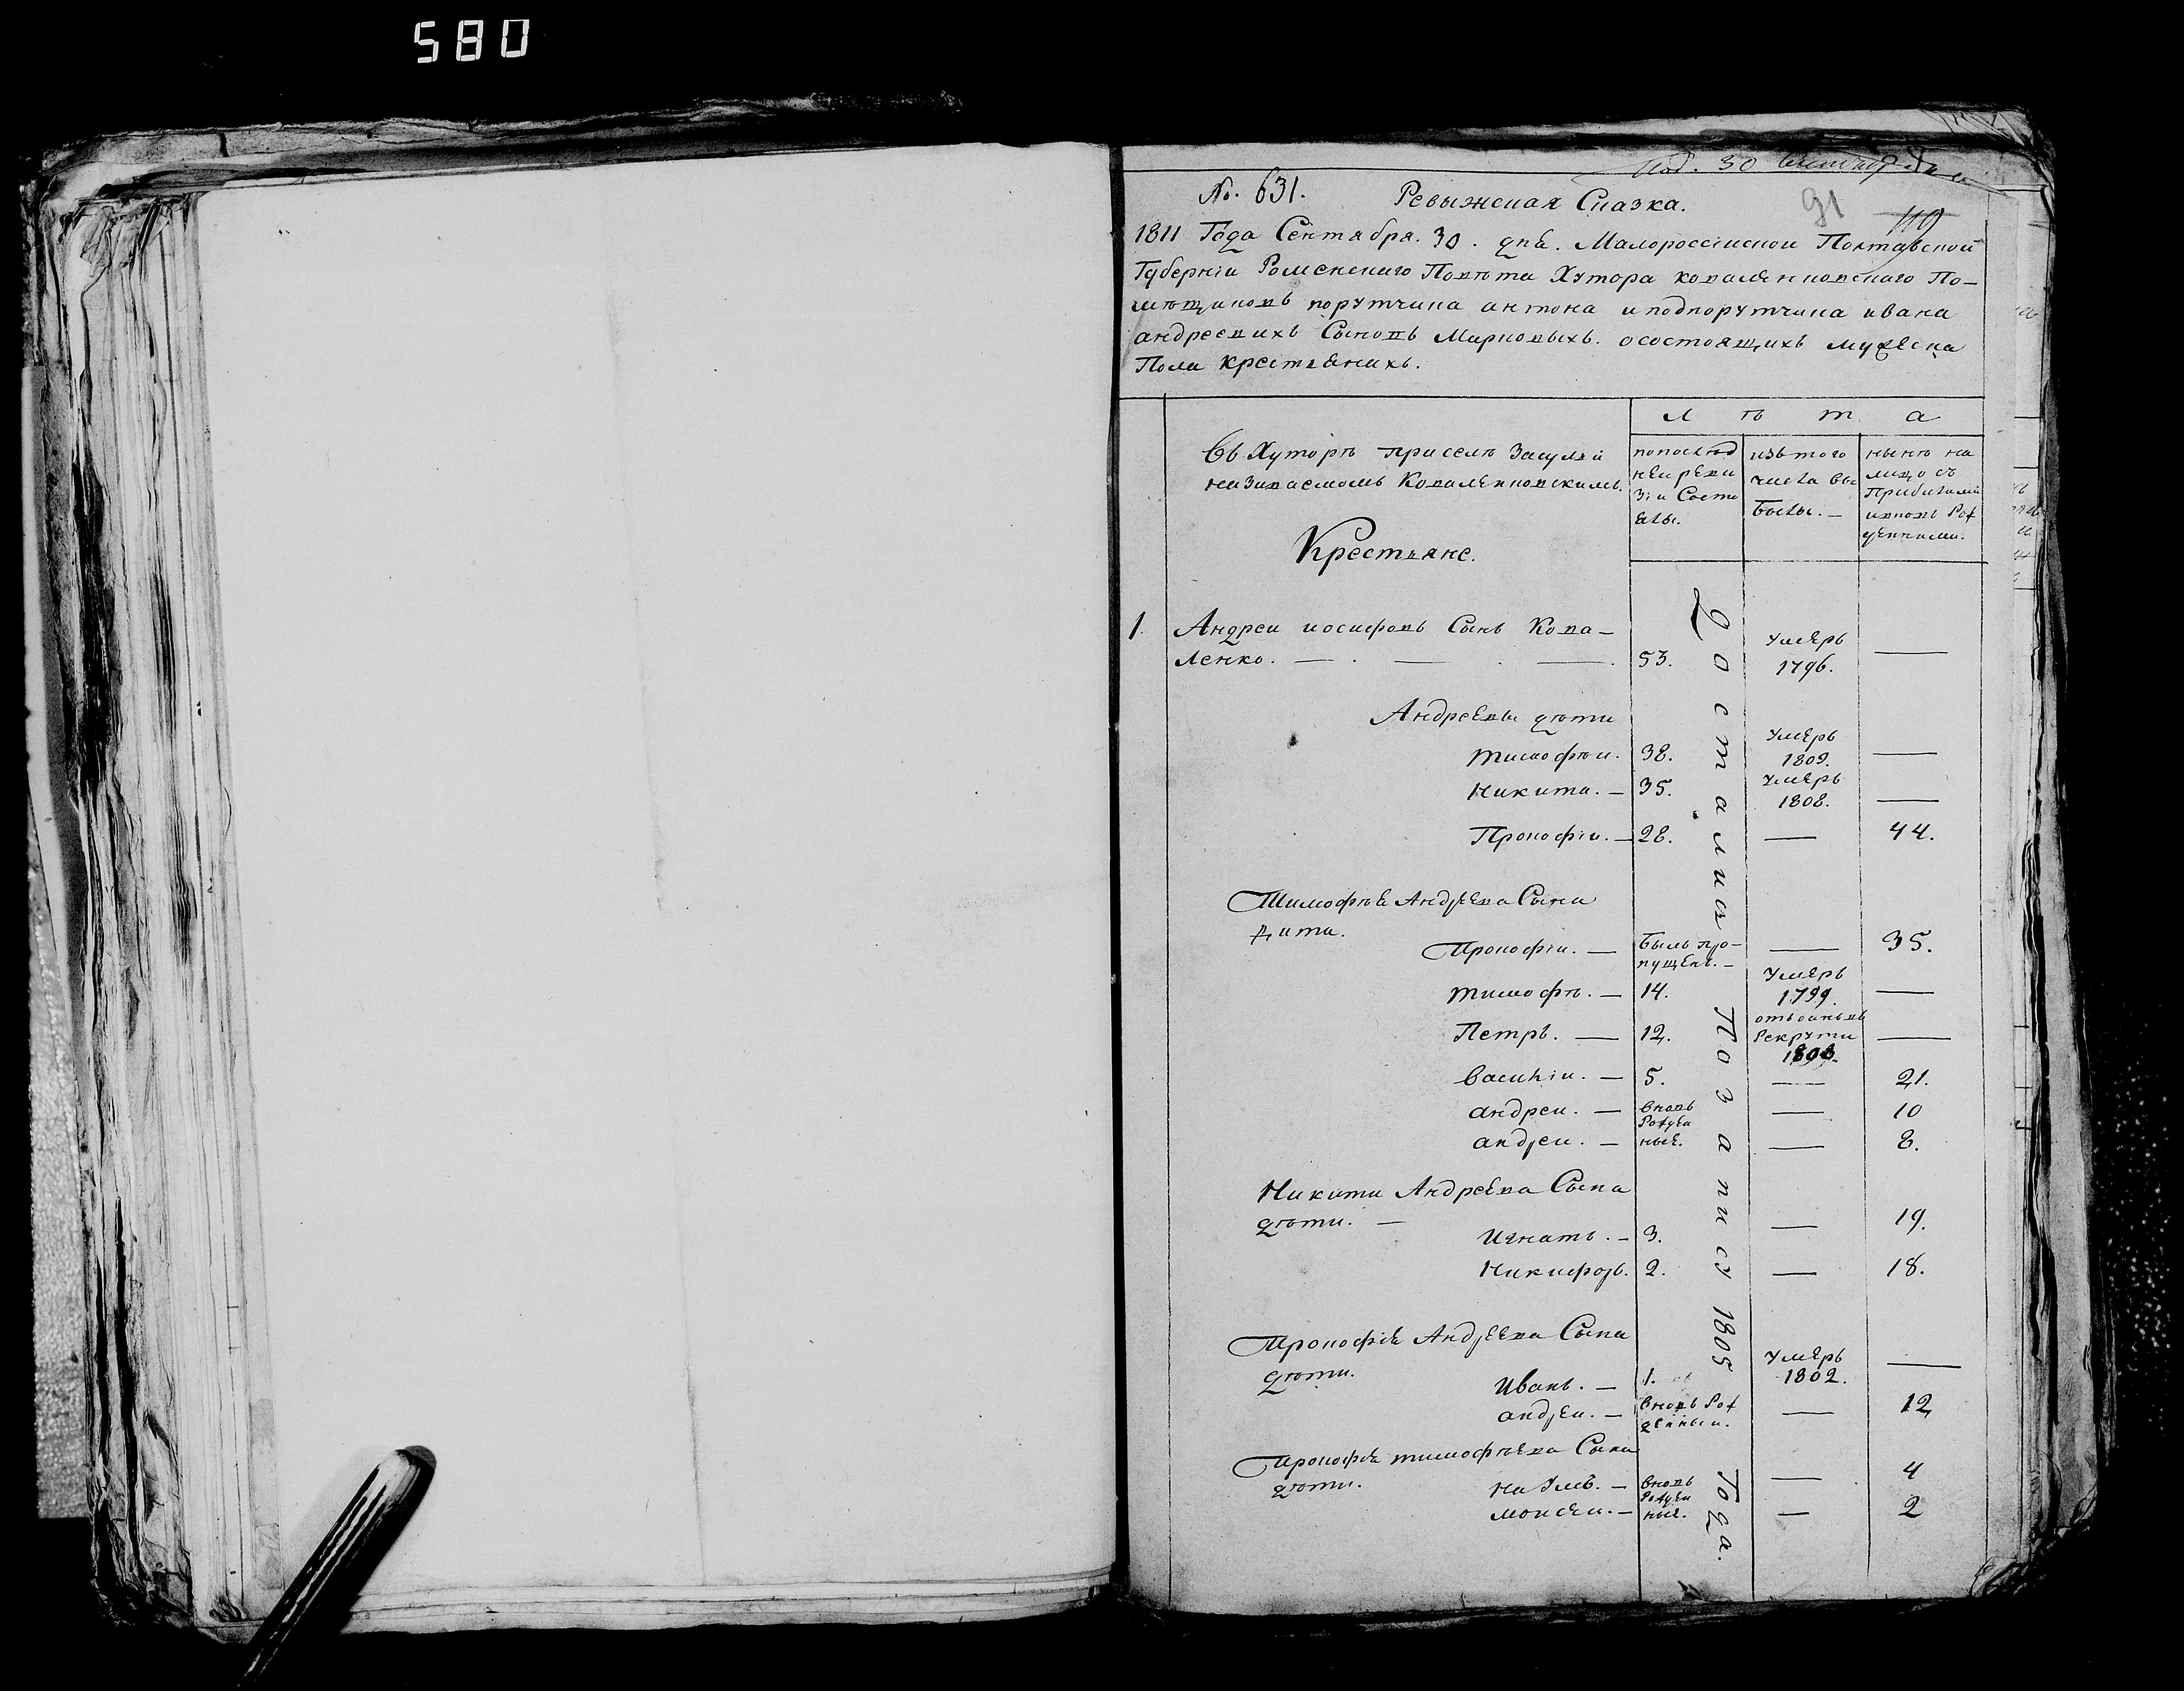 580
Под. 30 Сентябр
№. 631. Ревыжская Сказка. 91
119
1811 Года Сентября. 30. дня. Малороссiискои Полтавскои
Губернiи Роменского Повѣта Хутора коваленковского По-
мѣщиковъ порутчика антона и подпорутчика ивана
андреевихъ Сыновъ Марковыхъ. осостоящихъ мужеска
Пола крестьянихъ.
Л ѣ т а
Въ Хуторѣ приселѣ Засулли
називаемомъ Коваленковскимъ.
Крестьяне.
попослѣд
неи реви
зiи Состо
яло.
изътого
числа вы
было. —
нынѣ на
лицо съ
Прибилими
ивновь Рож
денними.
1. Андреи иосифовъ Сынъ Кова-
ленко. — . — . — . 53. умеръ 1796. —
Андреевы дѣти
тимофѣи. 38. умеръ 1809. —
Никита. — 35. умеръ 1808. —
Прокофiи. — 28. — 44.
Тимофѣя Андреева Сына
дити.
Прокофiи. — былъ про-
пущенъ. — — 35.
тимофѣ. — 14. умеръ 1799. —
Петръ. — 12. отъданъ въ Рекрути —
василiи. — 5. — 21.
андреи. — вновь — 10
андреи. — Рожден
ные. — 8.
Никити Андреева Сына
дѣти. —
Игнатъ. — 3. — 19.
Никифоръ. 2. — 18.
Прокофiя Андреева Сына
дѣти.
Иванъ. — 1. умеръ 1802. —
андреи. — вновь Рож
денныи. — 12
Прокофiя тимофѣева Сына
дѣти.
Наумъ. — вновь — 4
моисеи. — Рожден
ные. — 2
Досталися По запису 1805 Года.